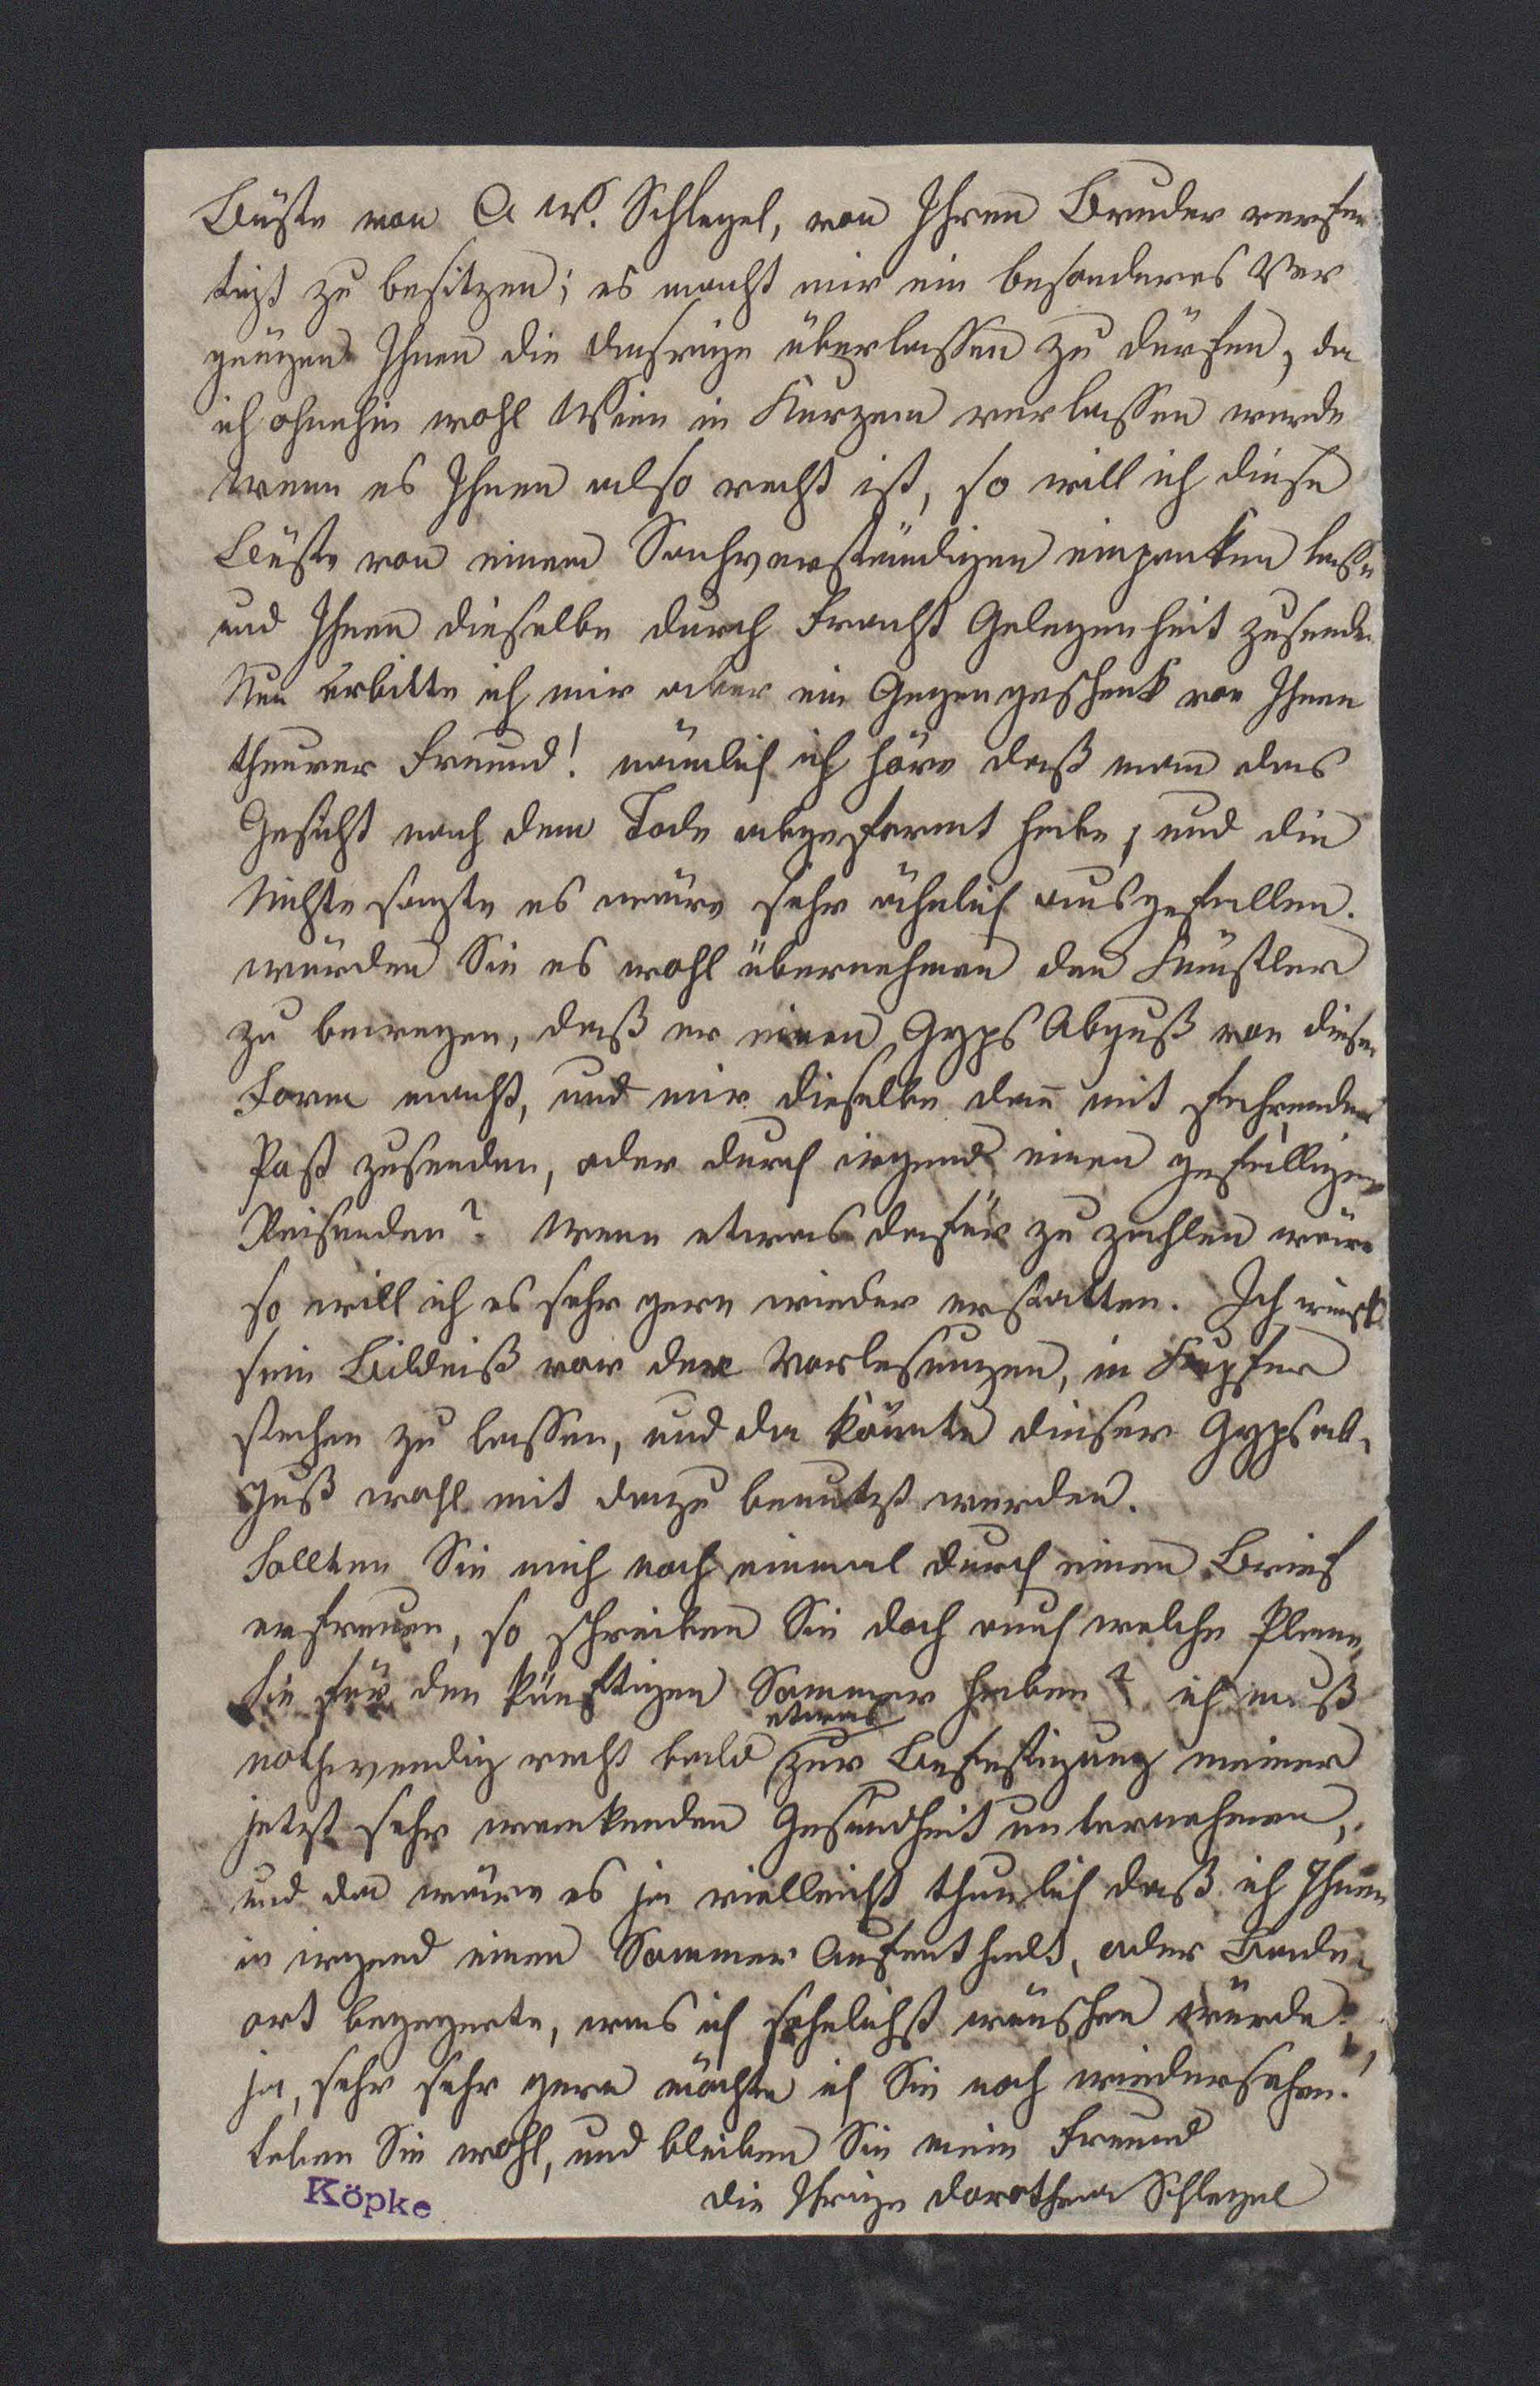 Büste von A W. Schlegel, von Ihren Bruder verfer
tigt zu besitzen; es macht mir ein besonderes Ver
gnügen Ihnen die Ansrige überlassen zu dürfen, da
ich ohnehin wohl Wien in Kurzem verlassen werde
wenn es Ihnen also recht ist, so will ich diese
Büste von einem Sachverständigen einpacken lassen
und Ihnen dieselbe durch Fracht Gelegenheit zusenden
Nun erbitte ich mir aber ein Gegengeschenk von Ihnen
theurer Freund! nämlich ich höre daß man das
Gesicht nach dem Tode abgeformt habe, und die
Nichte sagte es wäre sehr ähnlich ausgefallen.
würden Sie es wohl übernehmen den Künstler
zu bewegen, daß er einen Gyps Abguß von dieser
Form macht, und mir dieselbe dan̅ mit fahrender
Post zusenden, oder durch irgend einen gefälligen
Reisenden? Wenn etwas dafür zu zahlen wäre
so will ich es sehr gern wieder erstatten. Ich wünsche
sein Bildniß vor den Vorlesungen, in Kupfer
stechen zu lassen, und da könnte dieser Gypsab-
guß wohl mit dazu benutzt werden.
Sollten Sie mich noch einmal durch einen Brief
erfreuen, so schreiben Sie doch auch welche Plane
Sie für den künftigen Sommer haben? ich muß
nothwendig recht bald etwas zur Befestigung meiner
jetzt sehr wankenden Gesundheit unternehmen,
und da wäre es ja vielleicht thunlich daß ich Ihnen
in irgend einen Sommer Aufenthalt, oder Bade-
ort begegnete, was ich sehnlichst wünschen würde,
ja, sehr sehr gern möchte ich Sie noch wiedersehen!
Leben Sie wohl, und bleiben Sie mein Freund
die Ihrige Dorothea Schlegel
Köpke